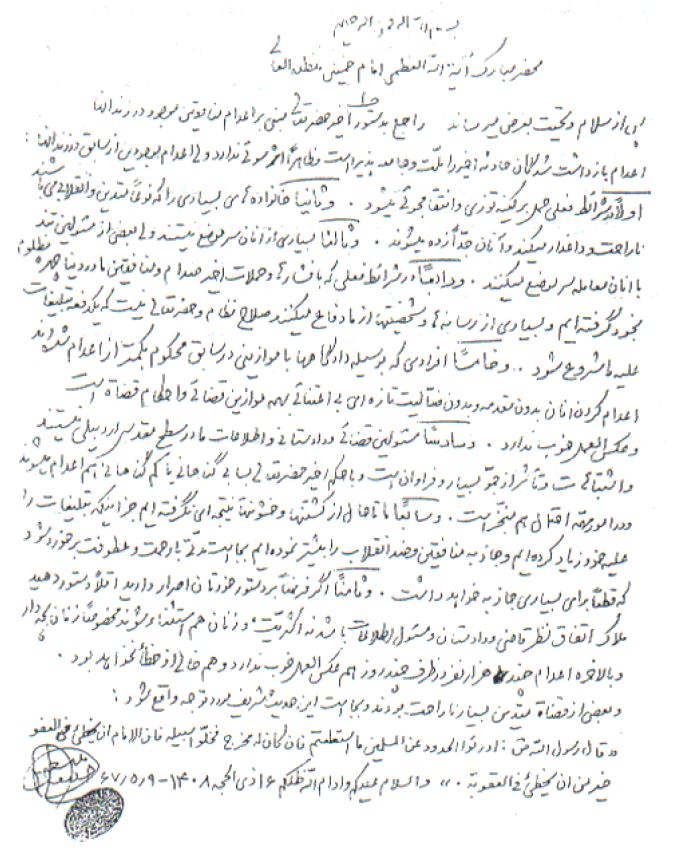 بسم الله الرحمن الرحیم
محضر مبارک آیة الله العظمی امام خمینی مدظله العالی
پس از سلام و تحیت بعرض میرساند راجع بدستور اخیر حضرتعالی مبنی بر اعدام منافقین موجود در زندانها
اعدام بازداشت شدگان حادثه اخیر را ملت و جامعه پذیرا است و ظاهراً اثر سوئی ندارد ولی اعدام موجودین از سابق در زندانها :
اولاً در شرائط فعلی حمل بر کینه توزی و انتقامجوئی میشود . و ثانیاً خانواده های بسیاری را که نوعاً متدین و انقلابی می باشند
ناراحت و داغدار میکند و آنان جداً زده میشوند . و ثالثاً بسیاری از آنان سر موضع نیستند ولی بعضی از مسئولین تند
با آنان معامله سر موضع میکنند . و رابعاً در شرائط فعلی که با فشارها و حملات اخیر صدام و منافقین ما در دنیا چهره مظلوم
بخود گرفته ایم و بسیاری از رسانه ها و شخصیتها از ما دفاع میکنند صلاح نظام و حضرتعالی نیست که یکدفعه تبلیغات
علیه ما شروع شود . و خامساً افرادی که بوسیله دادگاهها با موازینی در سابق محکوم بکمتر از اعدام شده اند
اعدام کردن آنان بدون مقدمه و بدون فعالیت تازه ای بی اعتنائی بهمه موازین قضائی و احکام قضاة است
و عکس العمل خوب ندارد . و سادساً مسئولین قضائی و دادستانی و اطلاعات ما در سطح مقدس اردبیلی نیستند
و اشتباهات و تأثر از جو بسیار و فراوان است و با حکم اخیر حضرتعالی بسا بی گناهانی یا کم گناهانی هم اعدام میشوند
و در امور مهمه احتمال هم منجز است . و سابعاً ما تا حال از کشتنها و خشونتها نتیجه ای نگرفته ایم جز اینکه تبلیغات را
علیه خود زیاد کرده ایم و جاذبه منافقین و ضد انقلاب را بیشتر نموده ایم بجا است مدتی با رحمت و عطوفت برخورد شود
که قطعاً برای بسیاری جاذبه خواهد داشت . و ثامناً اگر فرضاً بر دستور خودتان اصرار دارید اقلاً دستور دهید
ملاک اتفاق نظر قاضی و دادستان و مسئول اطلاعات باشد نه اکثریت و زنان هم استثناء شوند مخصوصاً زنان بچه دار
و بالاخره اعدام چند هزار نفر در ظرف چند روز هم عکس العمل خوب ندارد و هم خالی از خطا نخواهد بود .
و بعضی از قضاة متدین بسیار ناراحت بودند و بجا است این حدیث شریف مورد توجه واقع شود :
« قال رسول الله ص : ادرئوا الحدود عن المسلمین ما استطعتم فان کان له مخرج فخلوا سبیله فان الامام ان یخطئ فی العفو
خیر من ان یخطئ فی العقوبة . » والسلام علیکم و ادام الله ظلکم ۱۶ ذی الحجه ۱۴۰۸ - ۶۷/۵/۹